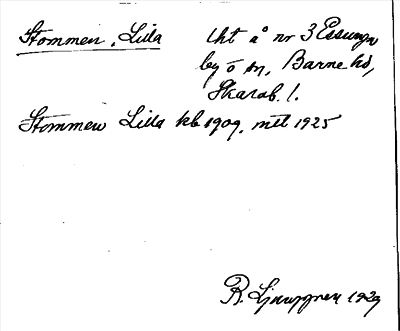 Stommen, Lilla
lht å nr 3 Essunga
by o sn, Barne hd,
Skarab. l.
Stommen Lilla kb 1909, mtl 1925
R. Ljunggren 1929